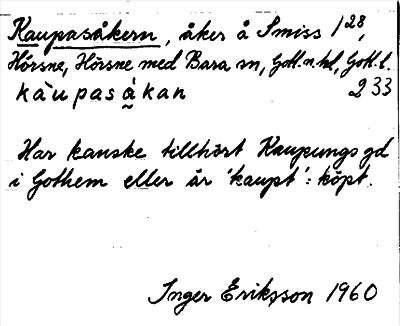 Kaupasåkern, åker å Smiss 1²⁸,
Hörsne, Hörsne med Bara sn, Gotl. n. hd, Gotl. l.
kàupasåkan 233
Har kanske tillhört Kaupungs gd
i Gothem eller är 'kaupt': köpt.
Inger Eriksson 1960